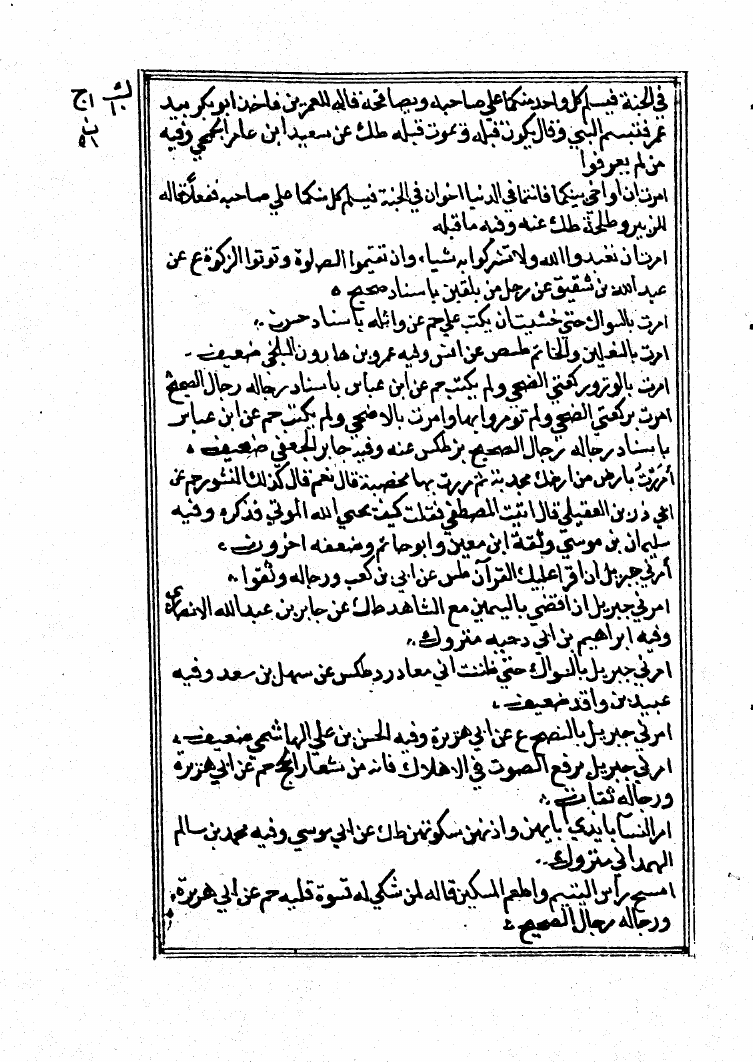 في الجنة فيسلم كل واحد منكما على صاحبه ويصافحه قاله للعمرين فاخذ ابو بكر بيد
عمر فتبسم النبي وقال يكون قبله ويموت قبله طك عن سعيد ابن عامر الجمحي وفيه
من لم يعرفوا
امرت ان اواخي بينكما فانتما في الدنيا اخوان في الجنة فيسلم كل منكما علي صاحبه ففعلا قاله
للزبير وطلحة طك عنه وفيه ما قبله
امرت ان تعبدوا الله ولا تشركوا به شياء وان تقيموا الصلوة وتوتوا الزكوة ع عن
عبد الله بن شقيق عن رجل من بلقين باسناد صحيح
امرت بالسواك حتى خشيت ان يكتب علي حم عن واثله باسناد حسن
امرت بالنعلين والخاتم طسص عن انس وفيه عمرو بن هارون البلخي ضعيف
امرت بالوتر وركعتي الضحي ولم يكتب حم عن ابن عباس باسناد رجاله رجال الصحيح
امرت بركعتي الضحي ولم تومروا بها وامرت بالاضحي ولم يكتب حم عن ابن عباس
باسناد رجاله رجال الصحيح بز طكس عنه وفيه جابر الجعفي ضعيف
أمررت بارض من ارضك مجدبة ثم مررت بها مخصبة قال نعم قال كذلك النشور حم عن
ابي رزين العقيلي قال اتيت المصطفي فقلت كيف يحيي الله الموتي فذكره وفيه
سليمان بن موسي وثقة ابن معين وابو حاتم وضعفه اخرون
أمرني جبريل ان اقرا عليك القرآن طس عن ابي بن كعب ورجاله وثقوا
امرني جبريل ان اقضي باليمين مع الشاهد طك عن جابر بن عبد الله الانصاري
وفيه ابراهيم بن ابي دحيه متروك
امرني جبريل بالسواك حتي ظننت اني سادرد طكس عن سهل بن سعد وفيه
عبيد بن واقد ضعيف
امرني جبريل بالنضح ع عن ابي هريرة وفيه الحسن بن علي الهاشمي ضعيف
امرني جبريل برفع الصوت في الاهلال فانه من شعار الحج حم عن ابي هريرة
ورجاله ثقات
امر النسآ بايدي آبايهن واذنهن سكوتهن طك عن ابي موسي وفيه محمد بن سالم
الهمداني متروك
امسح رأس اليتيم واطعم المسكين قاله لمن شكي له قسوة قلبه حم عن ابي هريرة
ورجاله رجال الصحيح